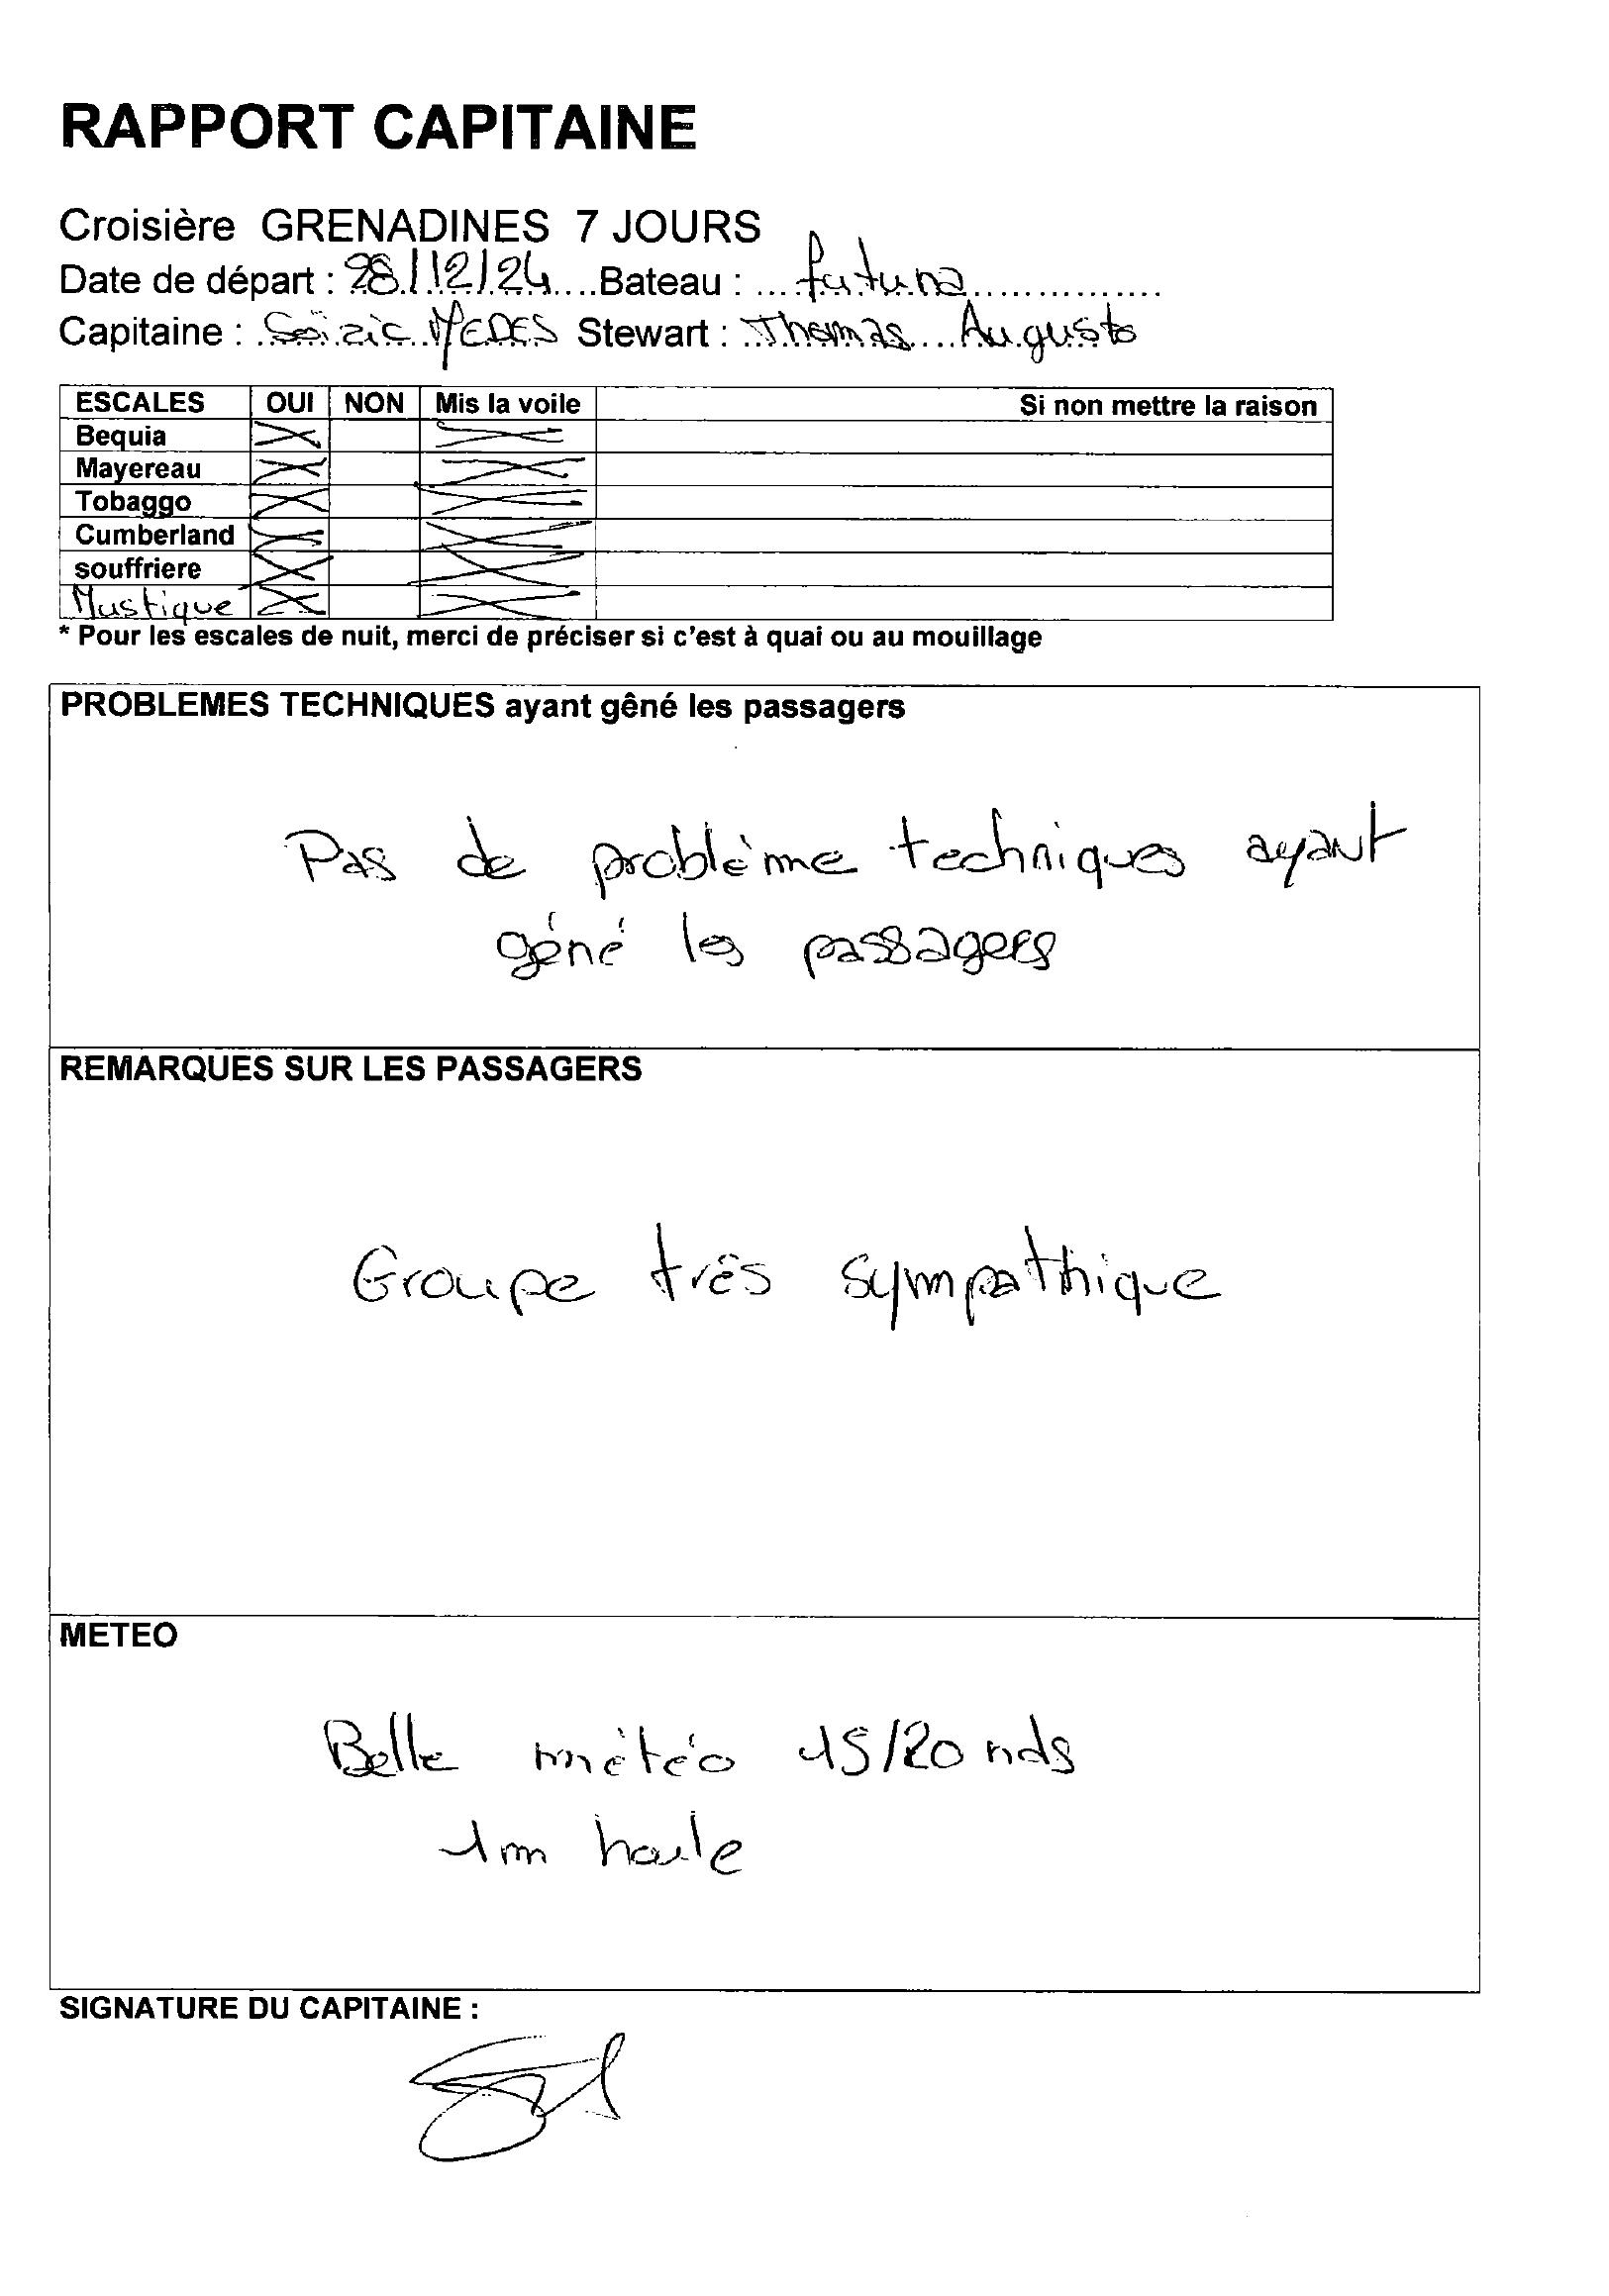 RAPPORT CAPITAINE
Croisière GRENADINES 7 JOURS
Date de départ : 28/12/24 Bateau : futuna
Capitaine : Soïzic MEDES Stewart : Thomas Augusto
ESCALES OUI NON Mis la voile Si non mettre la raison
Bequia X X
Mayereau X X
Tobaggo X X
Cumberland X X
souffriere X X
Mustique X X
* Pour les escales de nuit, merci de préciser si c'est à quai ou au mouillage
PROBLEMES TECHNIQUES ayant gêné les passagers
Pas de problème techniques ayant
géné les passagers
REMARQUES SUR LES PASSAGERS
Groupe très sympathique
METEO
Belle météo 15/20 nds
1m houle
SIGNATURE DU CAPITAINE :